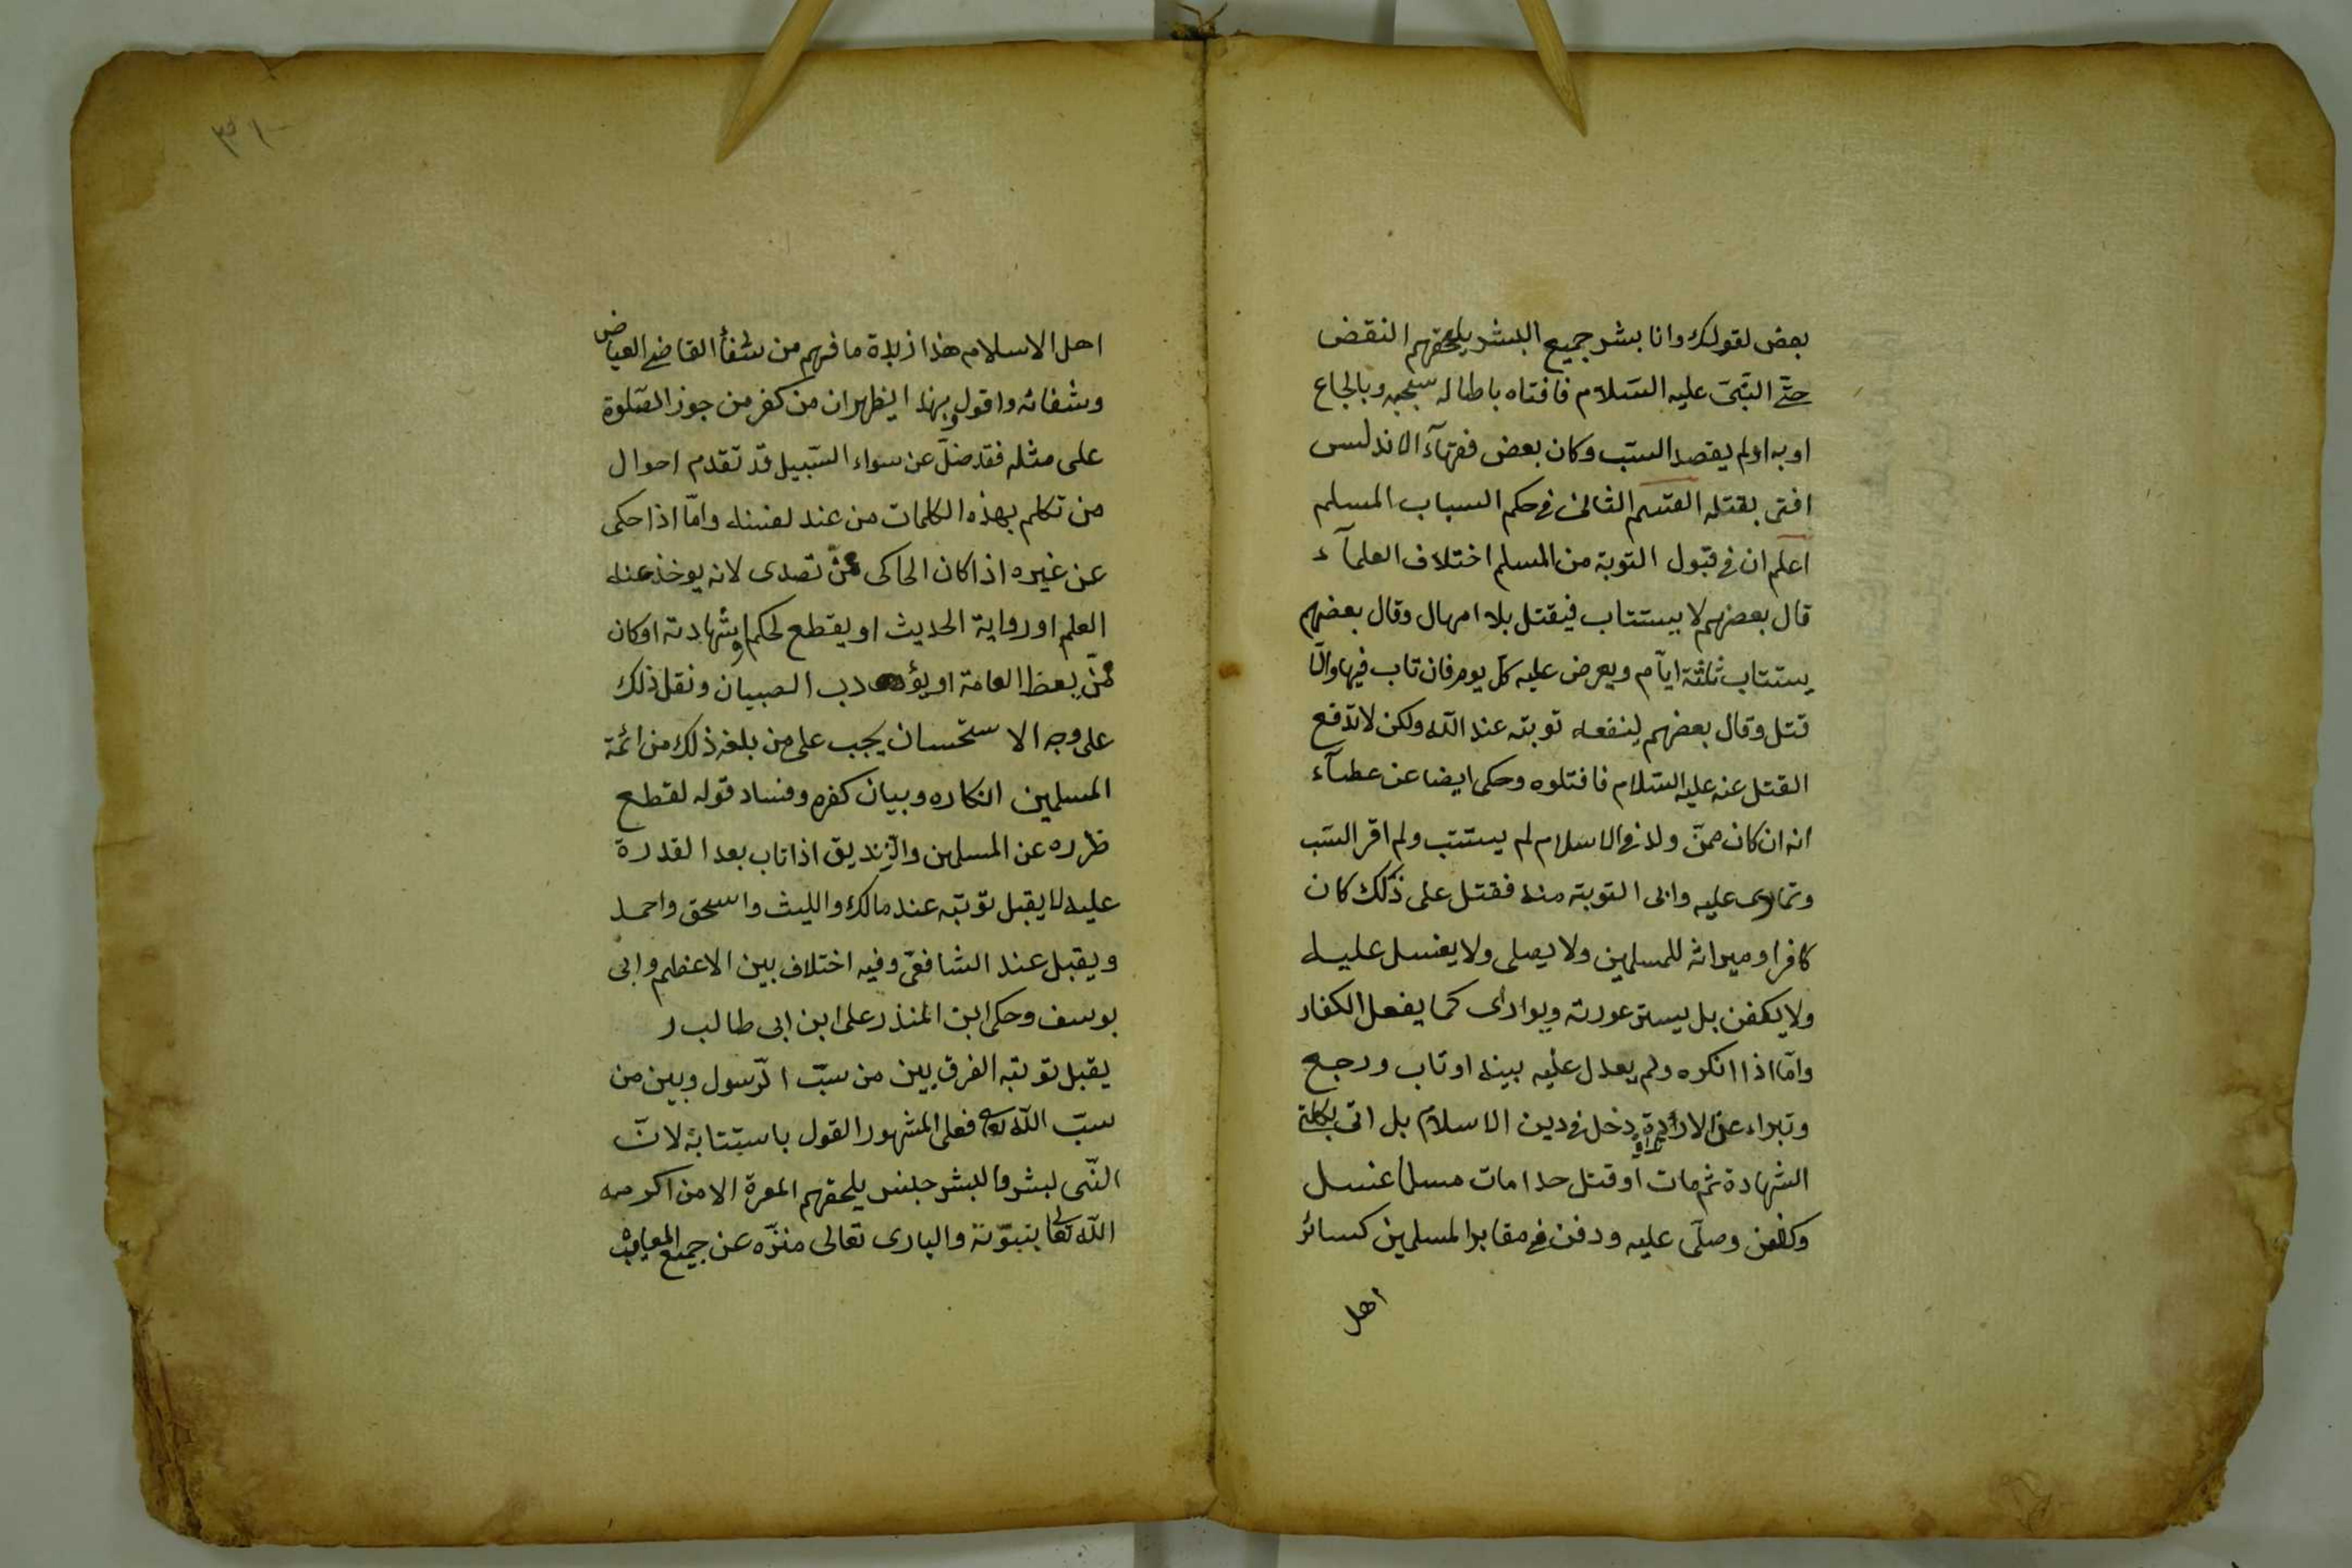 بعض لقولك وانا بشر جميع البشر يلحقهم النقض
حتى النبى عليه السلام فافتاه باطاله سجنه وبالجاع
اوبه اولم يقصد السب وكان بعض فقهآء الاندلس
افتى بقتله القسم الثانى فى حكم السباب المسلم
اعلم ان فى قبول التوبة من المسلم اختلاف العلمآء
قال بعضهم لا يستتاب فيقتل بلا امهال وقال بعضهم
يستتاب ثلثة ايام ويعرض عليه كل يوم فان تاب فيها والا
قتل وقال بعضهم ينفعه توبته عند الله ولكن لا تدفع
القتل عنه عليه السلام فاقتلوه وحكى ايضا عن عطآء
انه ان كان ممن ولد فى الاسلام لم يستتب ولم اقر السب
وتمادى عليه وابى التوبة منه فقتل على ذلك كان
كافرا وميراثه للمسلمين ولا يصلى ولا يغسل عليه
ولا يكفن بل يستر عورته ويوارى كما يفعل الكفار
وامّا اذا انكره ولم يعدل عليه بينه اوتاب ورجع
وتبراء عن الارادة دخل فى دين الاسلام بل اتى بكلمة
الشهادة ثم مات اوقتل حدا مات مسلما غسل
وكفن وصلى عليه ودفن فى مقابر المسلمين كسائر
اهل
٣١٠
اهل الاسلام هذا زبدة ما فهم من شفأ القاضى العياض
وشفائه واقول وبهذا يظهر ان من كفر من جوز الصلوة
على مثله فقد ضلّ عن سواء السبيل قد تقدم احوال
من تكلم بهذه الكلمات من عند لفسنه وامّا اذا حكى
عن غيره اذا كان الحاكى ممّن تصدى لانه يوخذ عنه
العلم او رواية الحديث او يقطع لحكم وشهادته اوكان
ممّن يعظ العامة او يؤدب الصبيان ونقل ذلك
على وجه الاستحسان يجب على من بلغه ذلك من ائمة
المسلمين انكاره وبيان كفره وفساد قوله لقطع
ظرره عن المسلمين والزنديق اذا تاب بعد القدرة
عليه لا يقبل توبته عند مالك والليث واسحق واحمد
ويقبل عند الشافعى وفيه اختلاف بين الاعظم وابى
يوسف وحكى ابن المنذر على ابن ابى طالب ر
يقبل توبته الفرق بين من سبّ الرّسول وبين من
سبّ الله تعالى فعلى المشهور القول باستتابة لانّ
النّبى بشر والبشر جنس يلحقهم المعرة الا من اكرمه
الله تعالى بنبوّته والبارى تعالى منزّه عن جميع المعايب